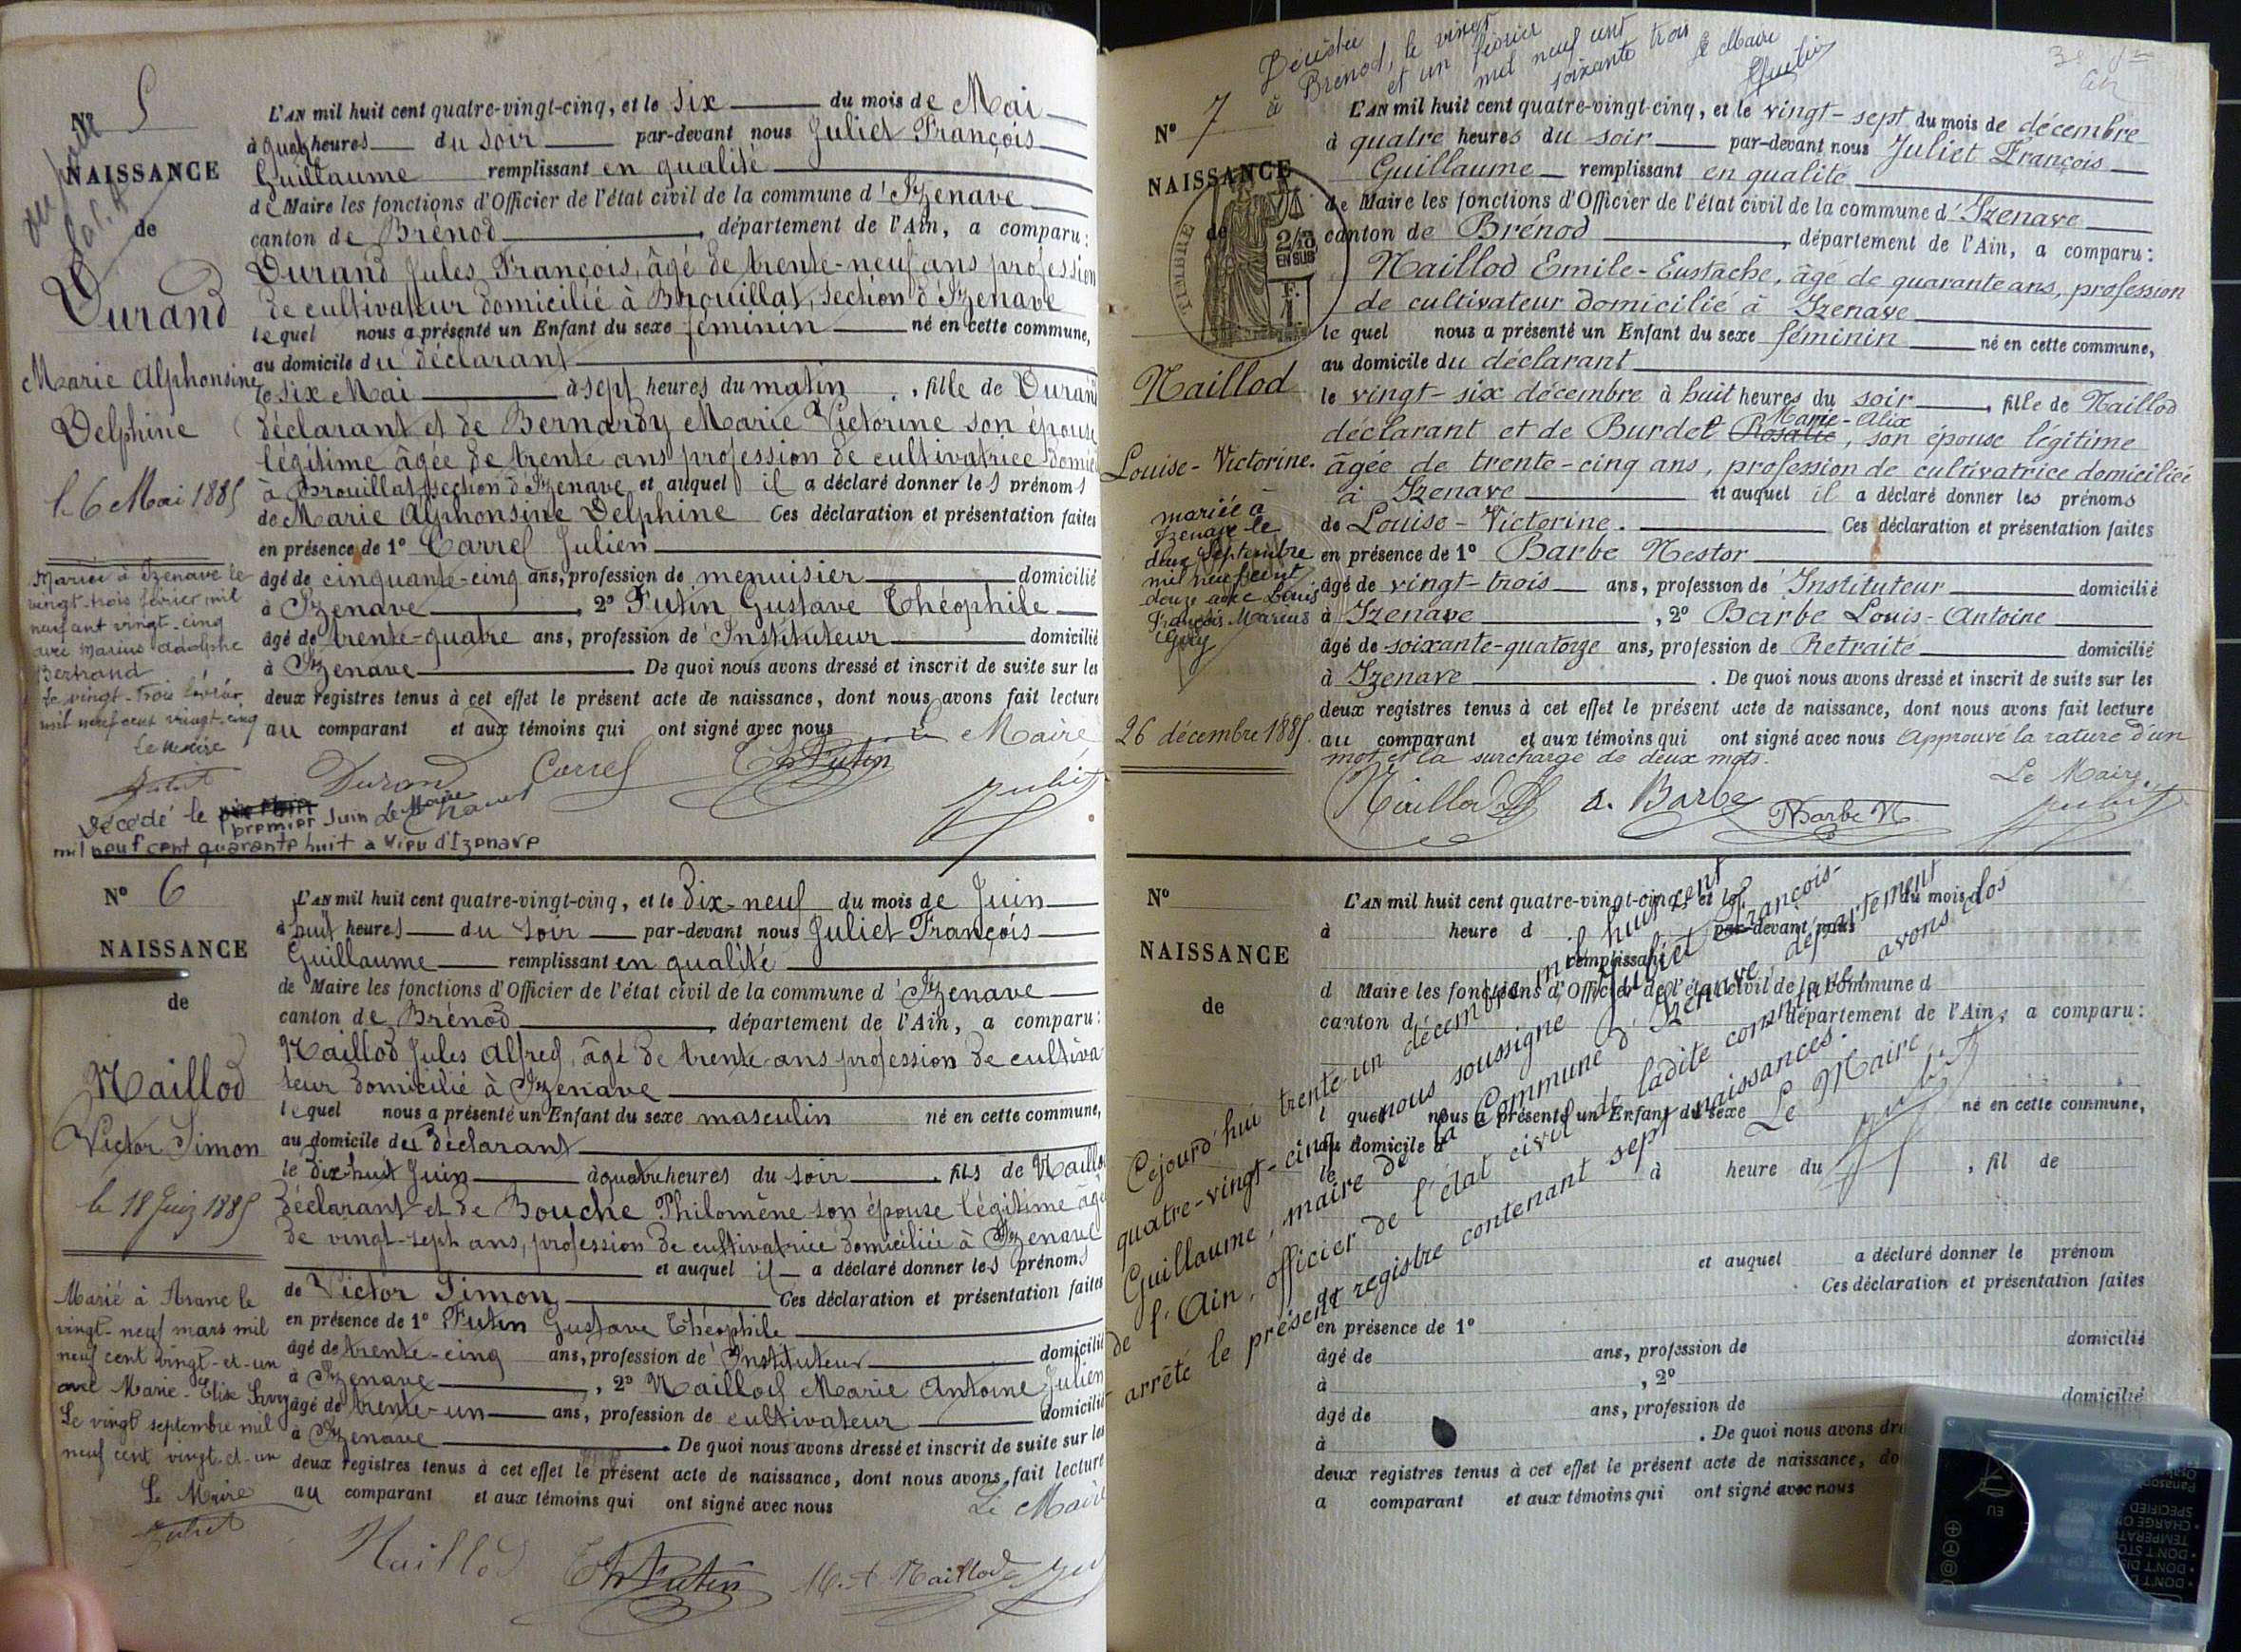 Nº 5
NAISSANCE
de
Durand
Marie Alphonsine
Delphine
le 6 Mai 1885
Mariée à Izenave le
vingt-trois février mil
neuf cent vingt-cinq
avec Marius Adolphe
Bertrand
Le vingt-trois février
mil neuf cent vingt-cinq
Le Maire
Juliet
L'AN mil huit cent quatre-vingt-cinq, et le six du mois de Mai
à quatre heures du soir par-devant nous Juliet François
Guillaume remplissant en qualité
de Maire les fonctions d'Officier de l'état civil de la commune d'Izenave
canton de Brénod, département de l'Ain, a comparu:
Durand Jules François, âgé de trente-neuf ans profession
de cultivateur domicilié à Brouillat, section d'Izenave
lequel nous a présenté un Enfant du sexe féminin né en cette commune,
au domicile du déclarant
le six Mai à sept heures du matin, fille de Durand
déclarant et de Bernardy Marie Victorine son épouse
légitime âgée de trente ans profession de cultivatrice domici
à Brouillat, section d'Izenave et auquel il a déclaré donner les prénoms
de Marie Alphonsine Delphine Ces déclaration et présentation faites
en présence de 1º Carrel Julien
âgé de cinquante-cinq ans, profession de menuisier domicilié
à Izenave, 2º Futin Gustave Théophile
âgé de trente-quatre ans, profession de Instituteur domicilié
à Izenave De quoi nous avons dressé et inscrit de suite sur les
deux registres tenus à cet effet le présent acte de naissance, dont nous avons fait lecture
au comparant et aux témoins qui ont signé avec nous Le Maire
Durand Carrel Th Futin Juliet
Décédé le premier Juin Le Maire
mil neuf cent quarante huit à Vieu d'Izenave
Nº 6
NAISSANCE
de
Naillod
Victor Simon
le 18 Juin 1885
Marié à Aranc le
vingt-neuf mars mil
neuf cent vingt-et-un
avec Marie-Elise Savy
Le vingt septembre mil
neuf cent vingt-et-un
Le Maire
Juliet
L'AN mil huit cent quatre-vingt-cinq, et le Dix-neuf du mois de Juin
à huit heures du soir par-devant nous Juliet François
Guillaume remplissant en qualité
de Maire les fonctions d'Officier de l'état civil de la commune d'Izenave
canton de Brénod, département de l'Ain, a comparu:
Naillod Jules Alfred, âgé de trente ans profession de cultiva
teur domicilié à Izenave
lequel nous a présenté un Enfant du sexe masculin né en cette commune,
au domicile du déclarant
le dix-huit Juin à quatre heures du soir, fils de Naillod
déclarant et de Bouche Philomène son épouse légitime âgée
de vingt-sept ans, profession de cultivatrice domiciliée à Izenave
et auquel il a déclaré donner les prénoms
de Victor Simon Ces déclaration et présentation faites
en présence de 1º Futin Gustave Théophile
âgé de trente-cinq ans, profession de Instituteur domicilié
à Izenave, 2º Naillod Marie Antoine Julien
âgé de trente-un ans, profession de cultivateur domicilié
à Izenave. De quoi nous avons dressé et inscrit de suite sur les
deux registres tenus à cet effet le présent acte de naissance, dont nous avons fait lecture
au comparant et aux témoins qui ont signé avec nous Le Maire
Naillod Th Futin M. A Naillod
Décédée
à Brénod, le vingt
et un février
mil neuf cent
soixante trois
Le Maire
Nº 7
NAISSANCE
de
TIMBRE
2/10
EN SUS
Naillod
Louise-Victorine.
mariée à
Izenave le
deux Septembre
mil neuf cent
douze avec Louis
François Marius
26 décembre 1885.
L'AN mil huit cent quatre-vingt-cinq, et le vingt-sept du mois de décembre
à quatre heures du soir par-devant nous Juliet François
Guillaume remplissant en qualité
de Maire les fonctions d'Officier de l'état civil de la commune d'Izenave
canton de Brénod, département de l'Ain, a comparu:
Naillod Emile-Eustache, âgé de quarante ans, profession
de cultivateur domicilié à Izenave
lequel nous a présenté un Enfant du sexe féminin né en cette commune,
au domicile du déclarant
le vingt-six décembre à huit heures du soir, fille de Naillod
Marie-Alix
déclarant et de Burdet Rosalie, son épouse légitime
âgée de trente-cinq ans, profession de cultivatrice domiciliée
à Izenave et auquel il a déclaré donner les prénoms
de Louise-Victorine. Ces déclaration et présentation faites
en présence de 1º Barbe Nestor
âgé de vingt-trois ans, profession de Instituteur domicilié
à Izenave, 2º Barbe Louis-Antoine
âgé de soixante-quatorze ans, profession de Retraité domicilié
à Izenave. De quoi nous avons dressé et inscrit de suite sur les
deux registres tenus à cet effet le présent acte de naissance, dont nous avons fait lecture
au comparant et aux témoins qui ont signé avec nous Approuvé la rature d'un
mot et la surcharge de deux mots.
Le Maire,
Naillod A. Barbe Barbe N. Juliet
Nº
NAISSANCE
de
L'AN mil huit cent quatre-vingt-cinq, et le du mois d
à heure d par-devant nous
remplissant
d Maire les fonctions d'Officier de l'état civil de la commune d
canton d département de l'Ain, a comparu:
l quel nous a présenté un Enfant du sexe né en cette commune,
au domicile d
le à heure du, fil de
et auquel a déclaré donner le prénom
de Ces déclaration et présentation faites
en présence de 1º
âgé de ans, profession de domicilié
à, 2º
âgé de ans, profession de domicilié
à. De quoi nous avons dre
deux registres tenus à cet effet le présent acte de naissance, do
a comparant et aux témoins qui ont signé avec nous
Cejourd'hui trente-un décembre mil huit cent
quatre-vingt-cinq, nous soussigné Juliet François-
Guillaume, maire de la Commune d'Izenave, département
de l'Ain, officier de l'état civil de ladite commune, avons clos
arrêté le présent registre contenant sept naissances.
Le Maire,
Juliet
EU